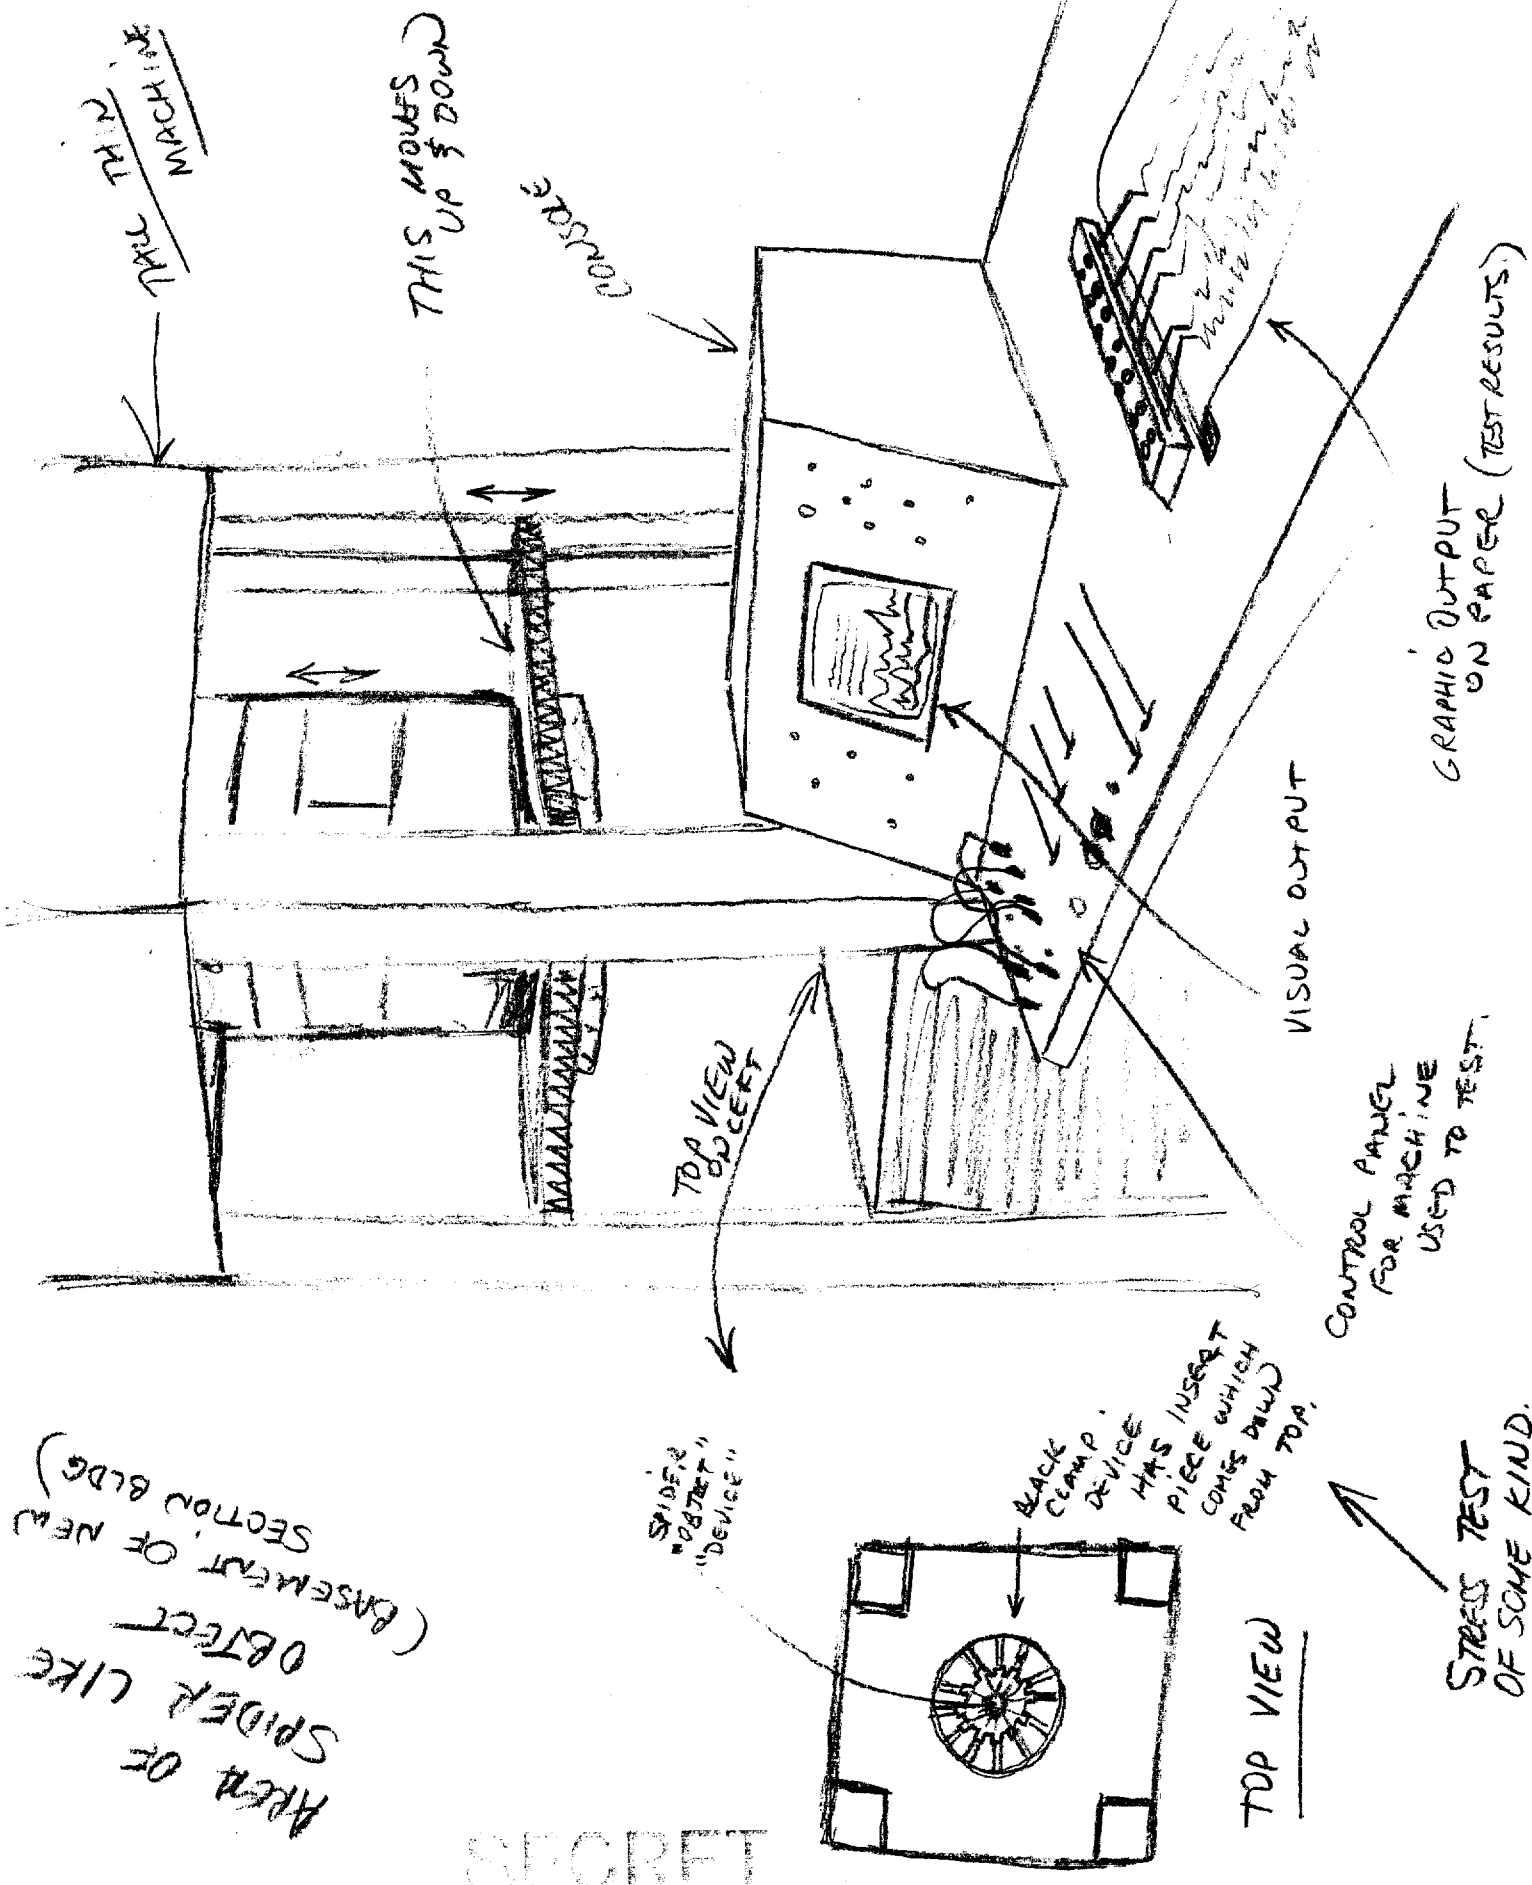 TALL THIN
MACHINE
THIS MOVES
UP & DOWN
CONSOLE
TOP VIEW
ON LEFT
VISUAL OUTPUT
GRAPHIC OUTPUT
ON PAPER (TEST RESULTS.)
CONTROL PANEL
FOR MACHINE
USED TO TEST.
AREA OF
SPIDER LIKE
OBJECT
(BASEMENT OF NEW
SECTION BLDG)
SPIDER
"OBJECT"
"DEVICE"
BLACK
CLAMP.
DEVICE
HAS INSERT
PIECE WHICH
COMES DOWN
FROM TOP.
TOP VIEW
STRESS TEST
OF SOME KIND.
SECRET